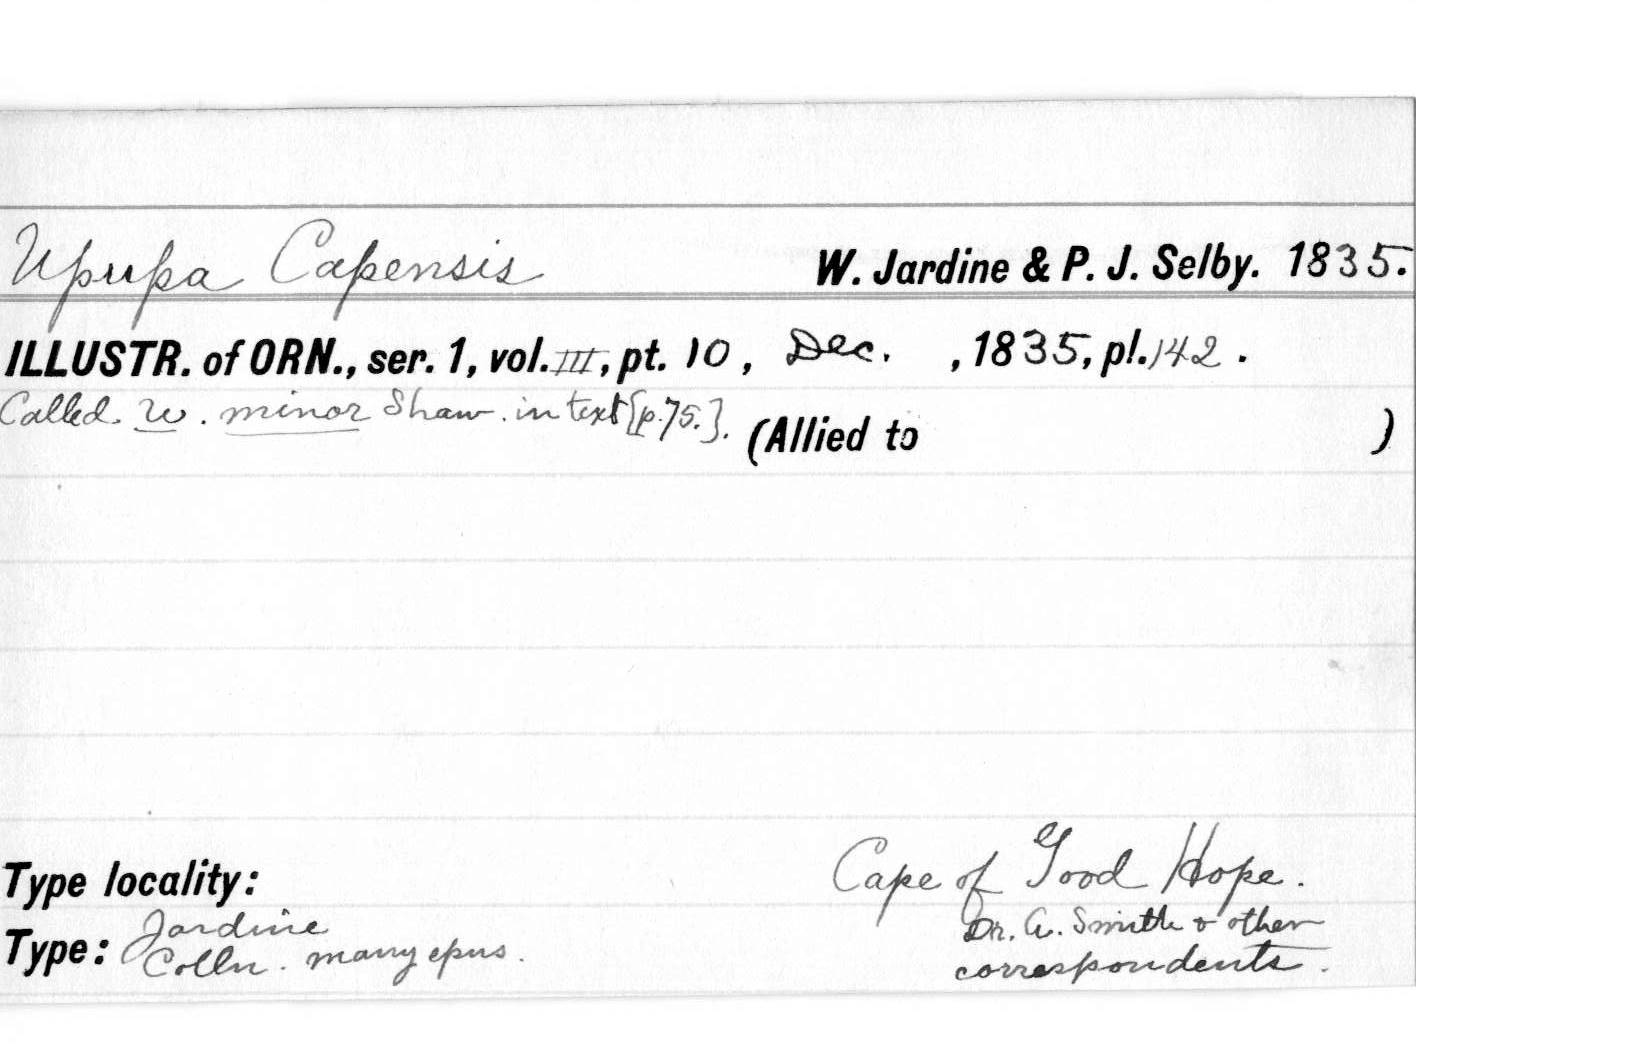 Upupa Capensis W. Jardine & P. J. Selby. 1835.
ILLUSTR. of ORN., ser. 1, vol. III, pt. 10, Dec. , 1835, pl. 142.
Called U. minor Shaw. in text [p.75.]. (Allied to )
Type locality: Cape of Good Hope.
Type: Jardine Dr. A. Smith & other
Colln. many epms. correspondents.